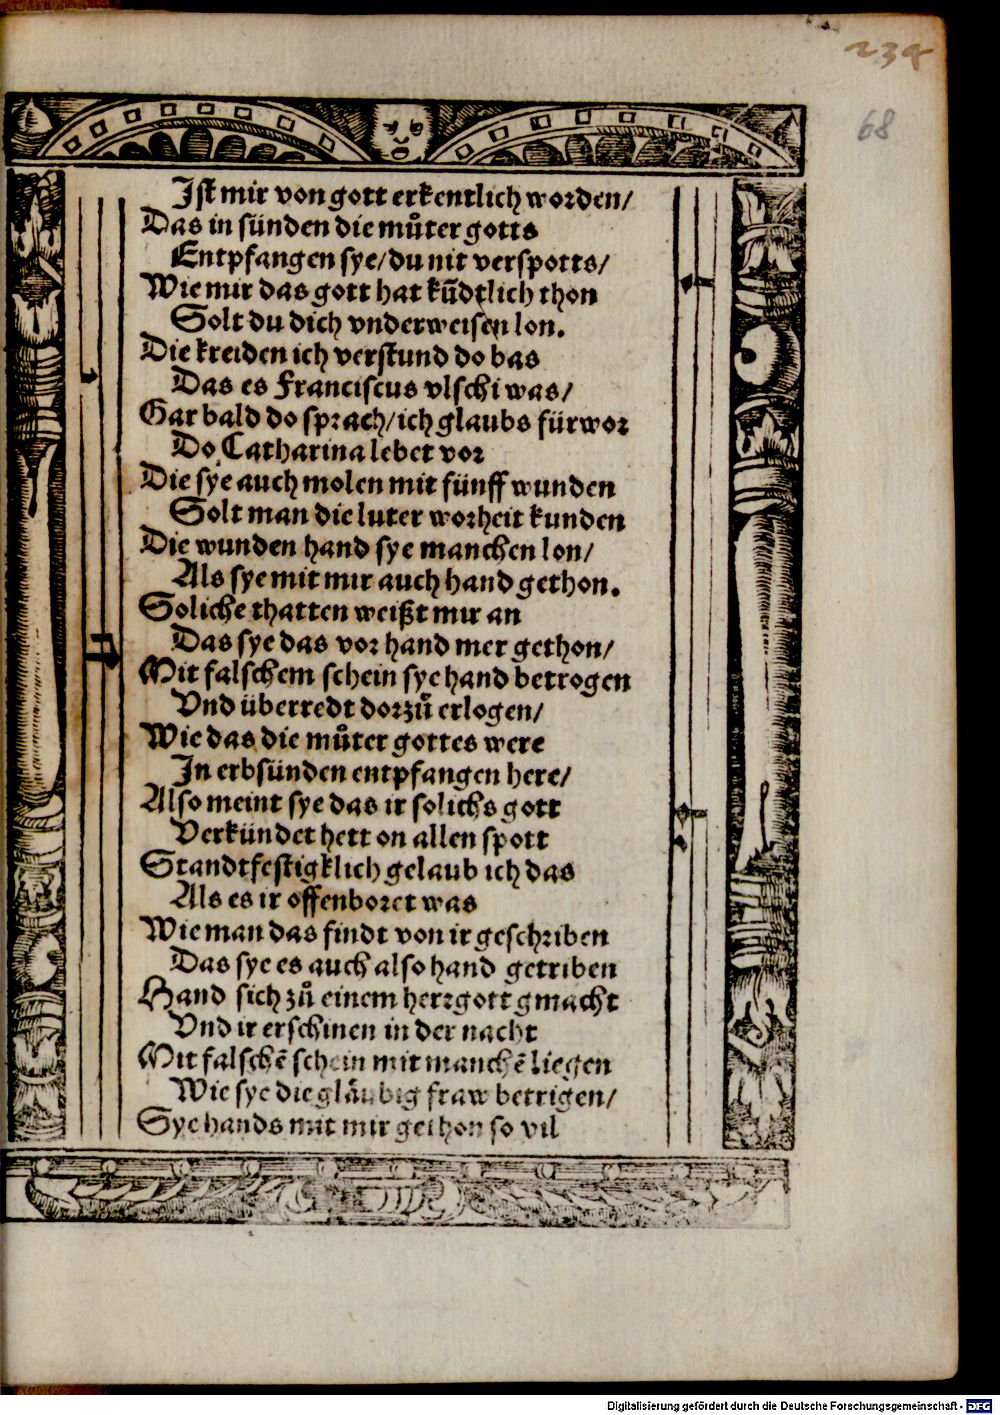 234
68
Ist mir von gott erkentlich worden/
Das in sünden die můter gotts
Entpfangen sye/du nit verspotts/
Wie mir das gott hat kūdtlich thon
Solt du dich vnderweisen lon.
Die kreiden ich verstund do bas
Das es Franciscus vlschi was/
Gar bald do sprach/ich glaubs fürwor
Do Catharina lebet vor
Die sye auch molen mit fünff wunden
Solt man die luter worheit kunden
Die wunden hand sye manchen lon/
Als sye mit mir auch hand gethon.
Soliche thatten weißt mir an
Das sye das vor hand mer gethon/
Mit falschem schein sye hand betrogen
Vnd überredt dorzů erlogen/
Wie das die můter gottes were
In erbsünden entpfangen here/
Also meint sye das ir solichs gott
Verkündet hett on allen spott
Standtfestigklich gelaub ich das
Als es ir offenboret was
Wie man das findt von ir geschriben
Das sye es auch also hand getriben
Hand sich zů einem herrgott gmacht
Vnd ir erschinen in der nacht
Mit falschē schein mit manchē liegen
Wie sye die gläubig fraw betrigen/
Sye hands mit mir gethon so vil
Digitalisierung gefördert durch die Deutsche Forschungsgemeinschaft - DFG